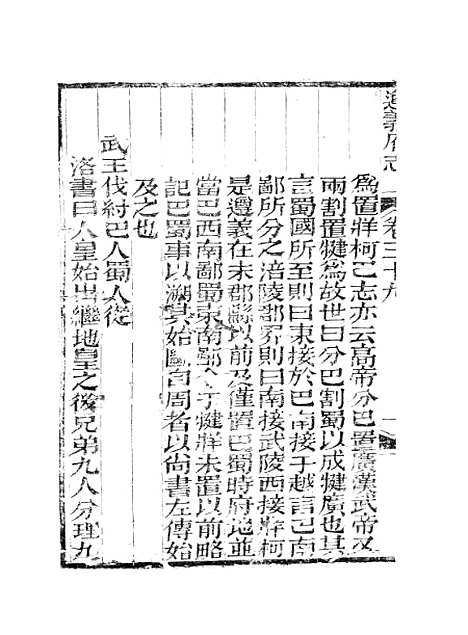 遵義府志 卷三十九 一
為置牂柯巴志亦云高帝分巴置廣漢武帝又
兩割置犍為故世曰分巴割蜀以成犍廣也其
言蜀國所至則曰東接於巴南接于越言巴南
鄙所分之涪陵郡界則曰南接武陵西接牂柯
是遵義在未郡縣以前及僅置巴蜀時府地並
當巴西南鄙蜀東南鄙今于犍牂未置以前略
記巴蜀事以溯其始斷自周者以尚書左傳始
及之也
武王伐紂巴人蜀人從
洛書曰人皇始出繼地皇之後兄弟九人分理九